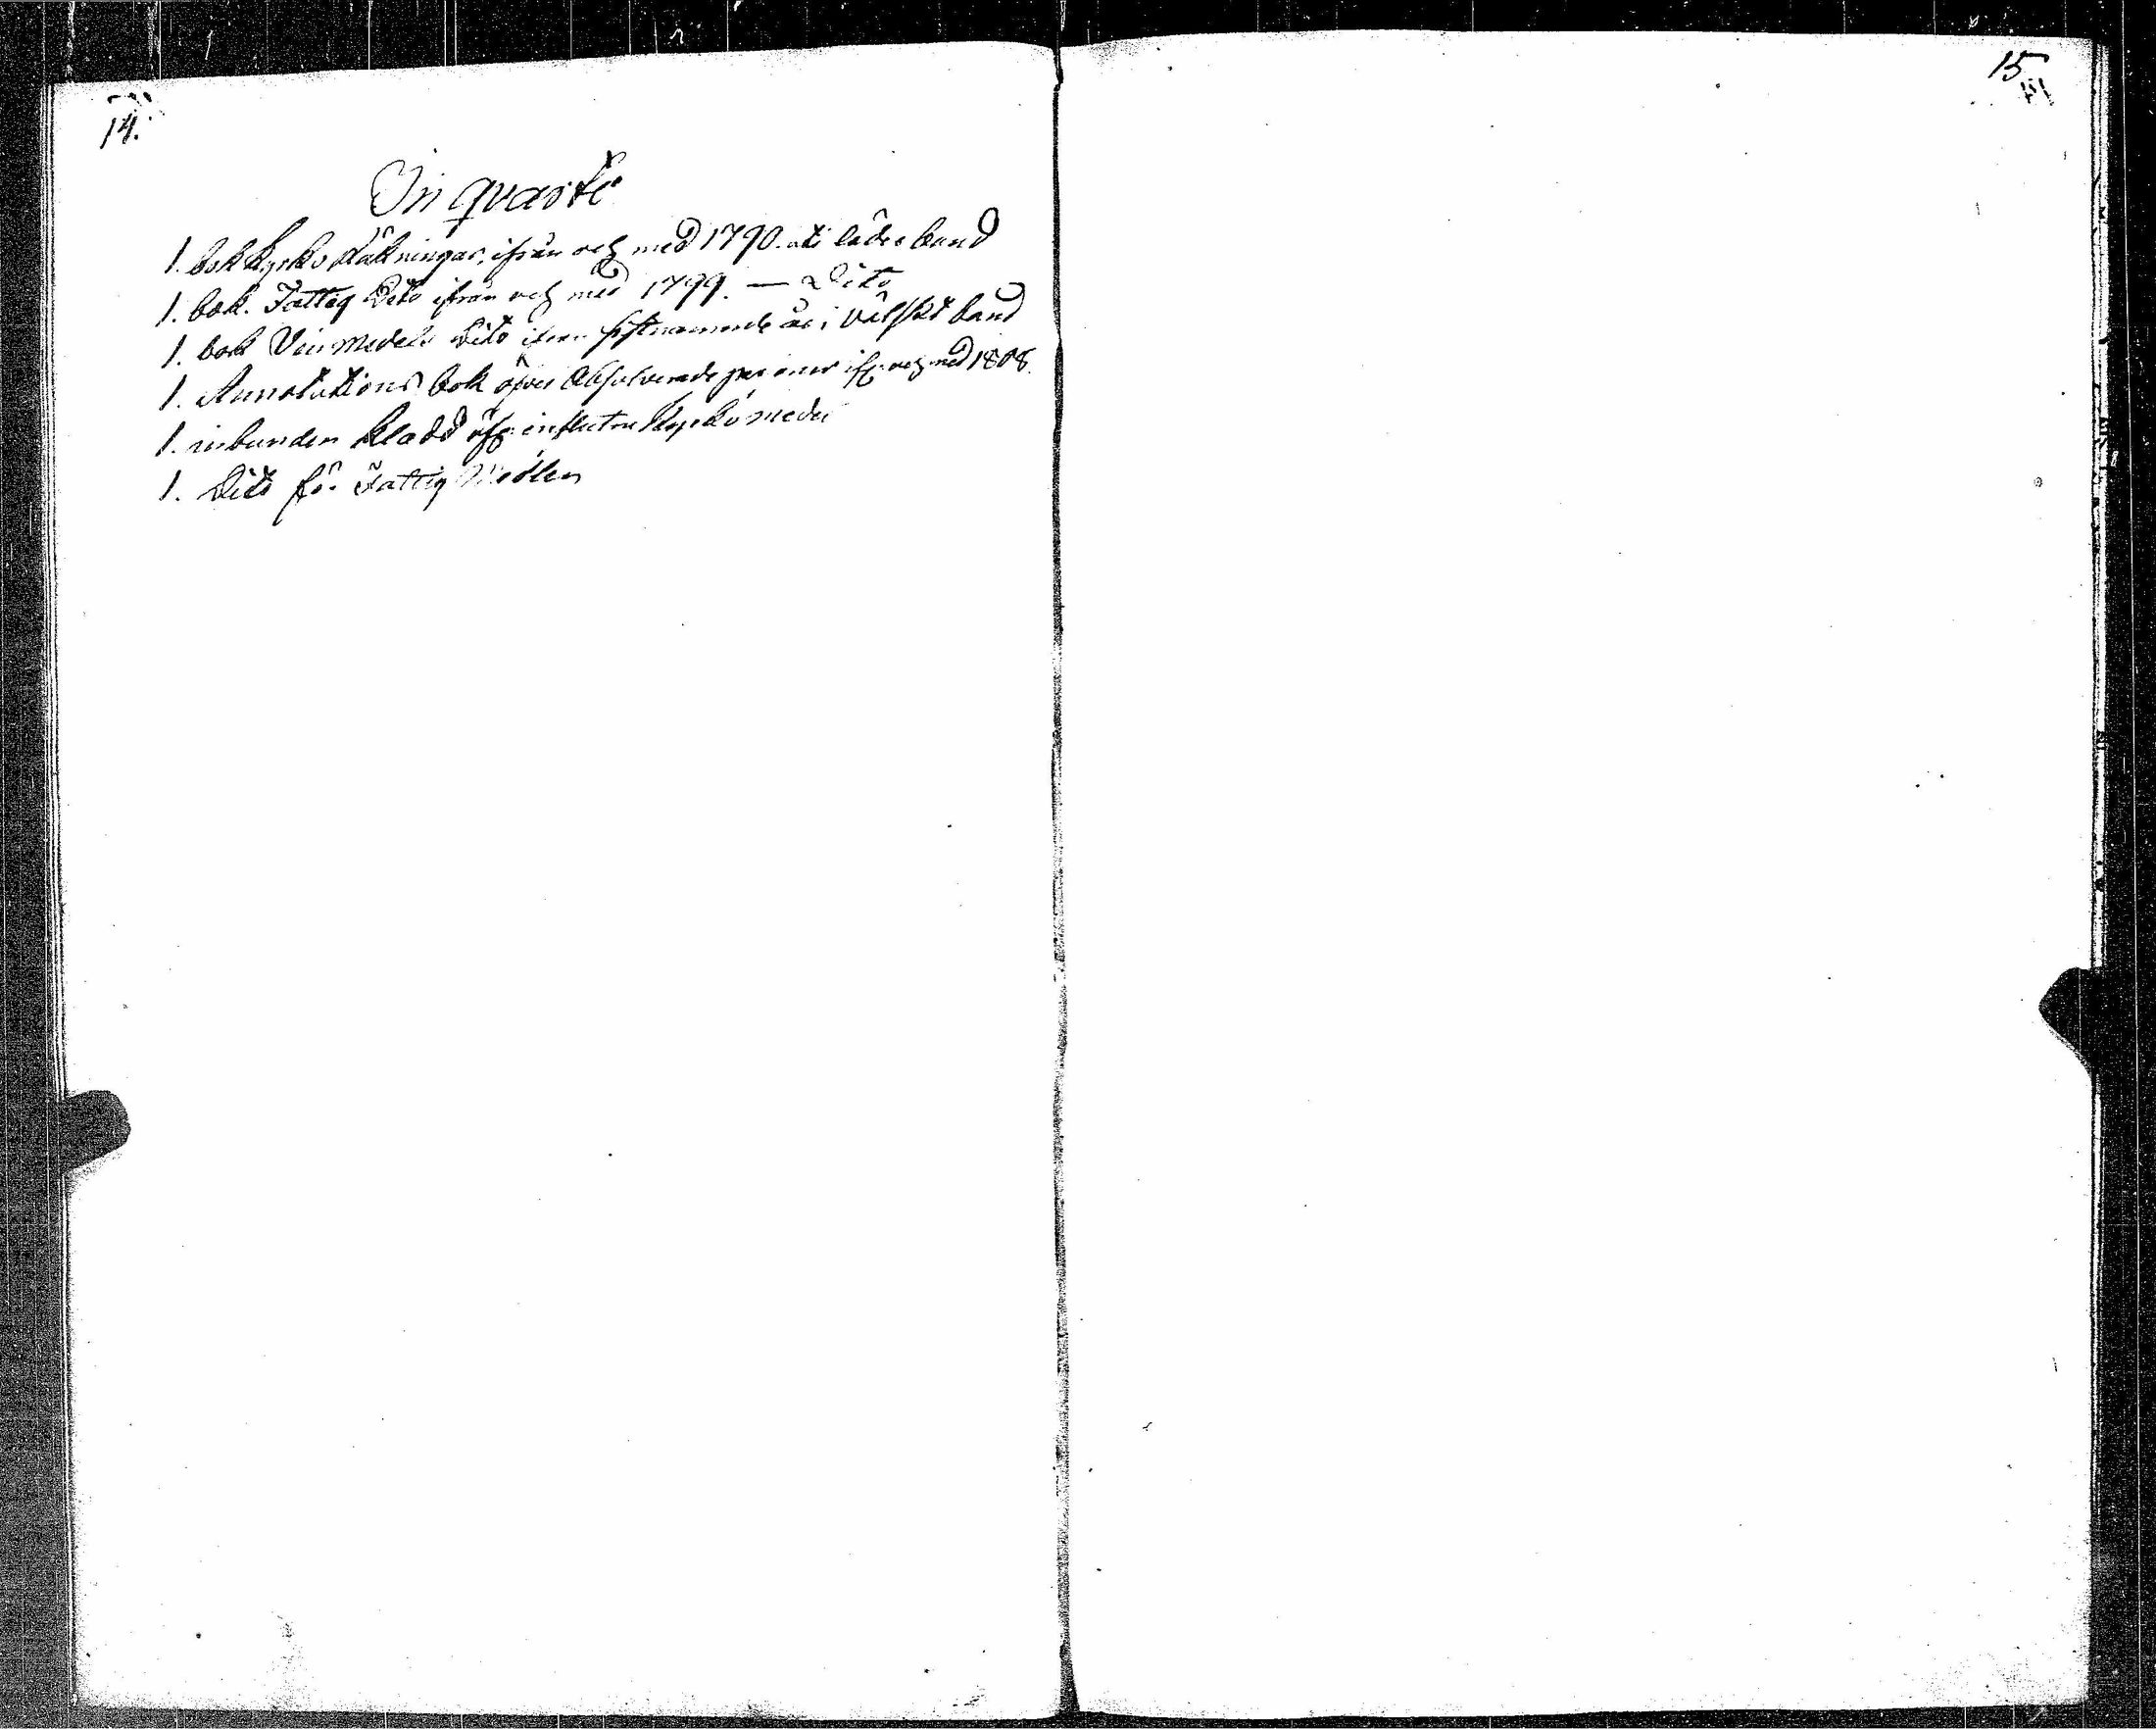 14.
In quarto
1. bok Kyrko Räkningar, ifrån och med 1790. uti läder band
1. bok. Fattig Dito ifrån och med 1799. — Dito
1. bok Vin Medels Dito ifrån sistnämnde år i Wälskt band
1. Annotations bok öfver Absolverade personer ifr. och med 1808.
1. inbunden Kladd öfv. influtne Kyrko medel
1. Dito för Fattig Medlen
15